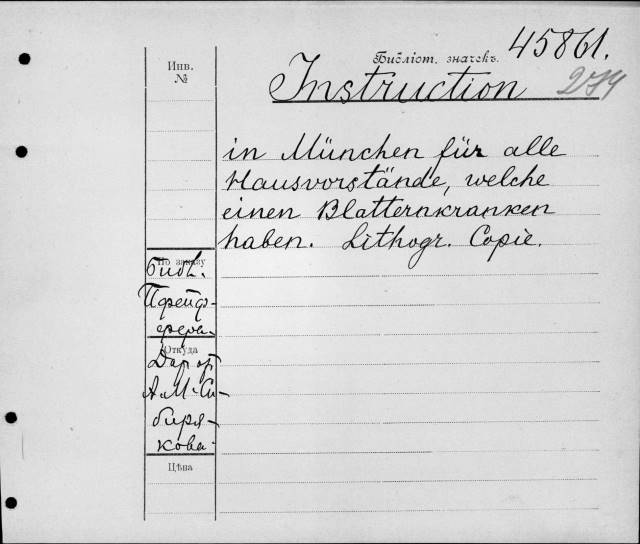 45861.
Инв. №
Библіот. значекъ.
Instruction
in München für alle
Hausvorstände, welche
einen Blatternkranken
haben. Lithogr. Copie.
По заказу
Библ.
Пфейф-
фера.
Откуда
Дар от
А. М. Си-
биря-
кова.
Цѣна